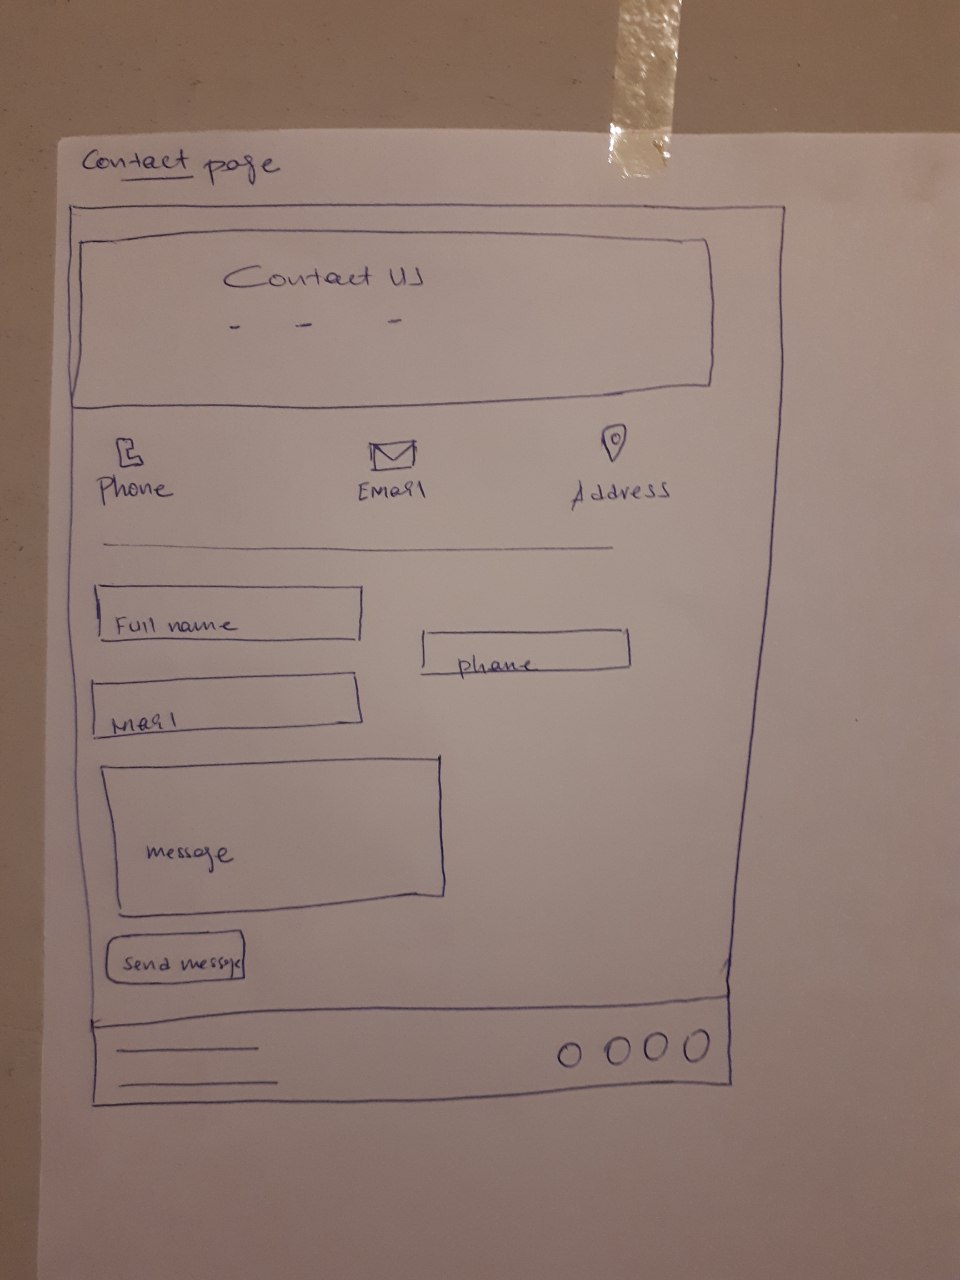 Contact page
Contact us
- - -
Phone Email Address
Full name
phone
Mail
message
Send message